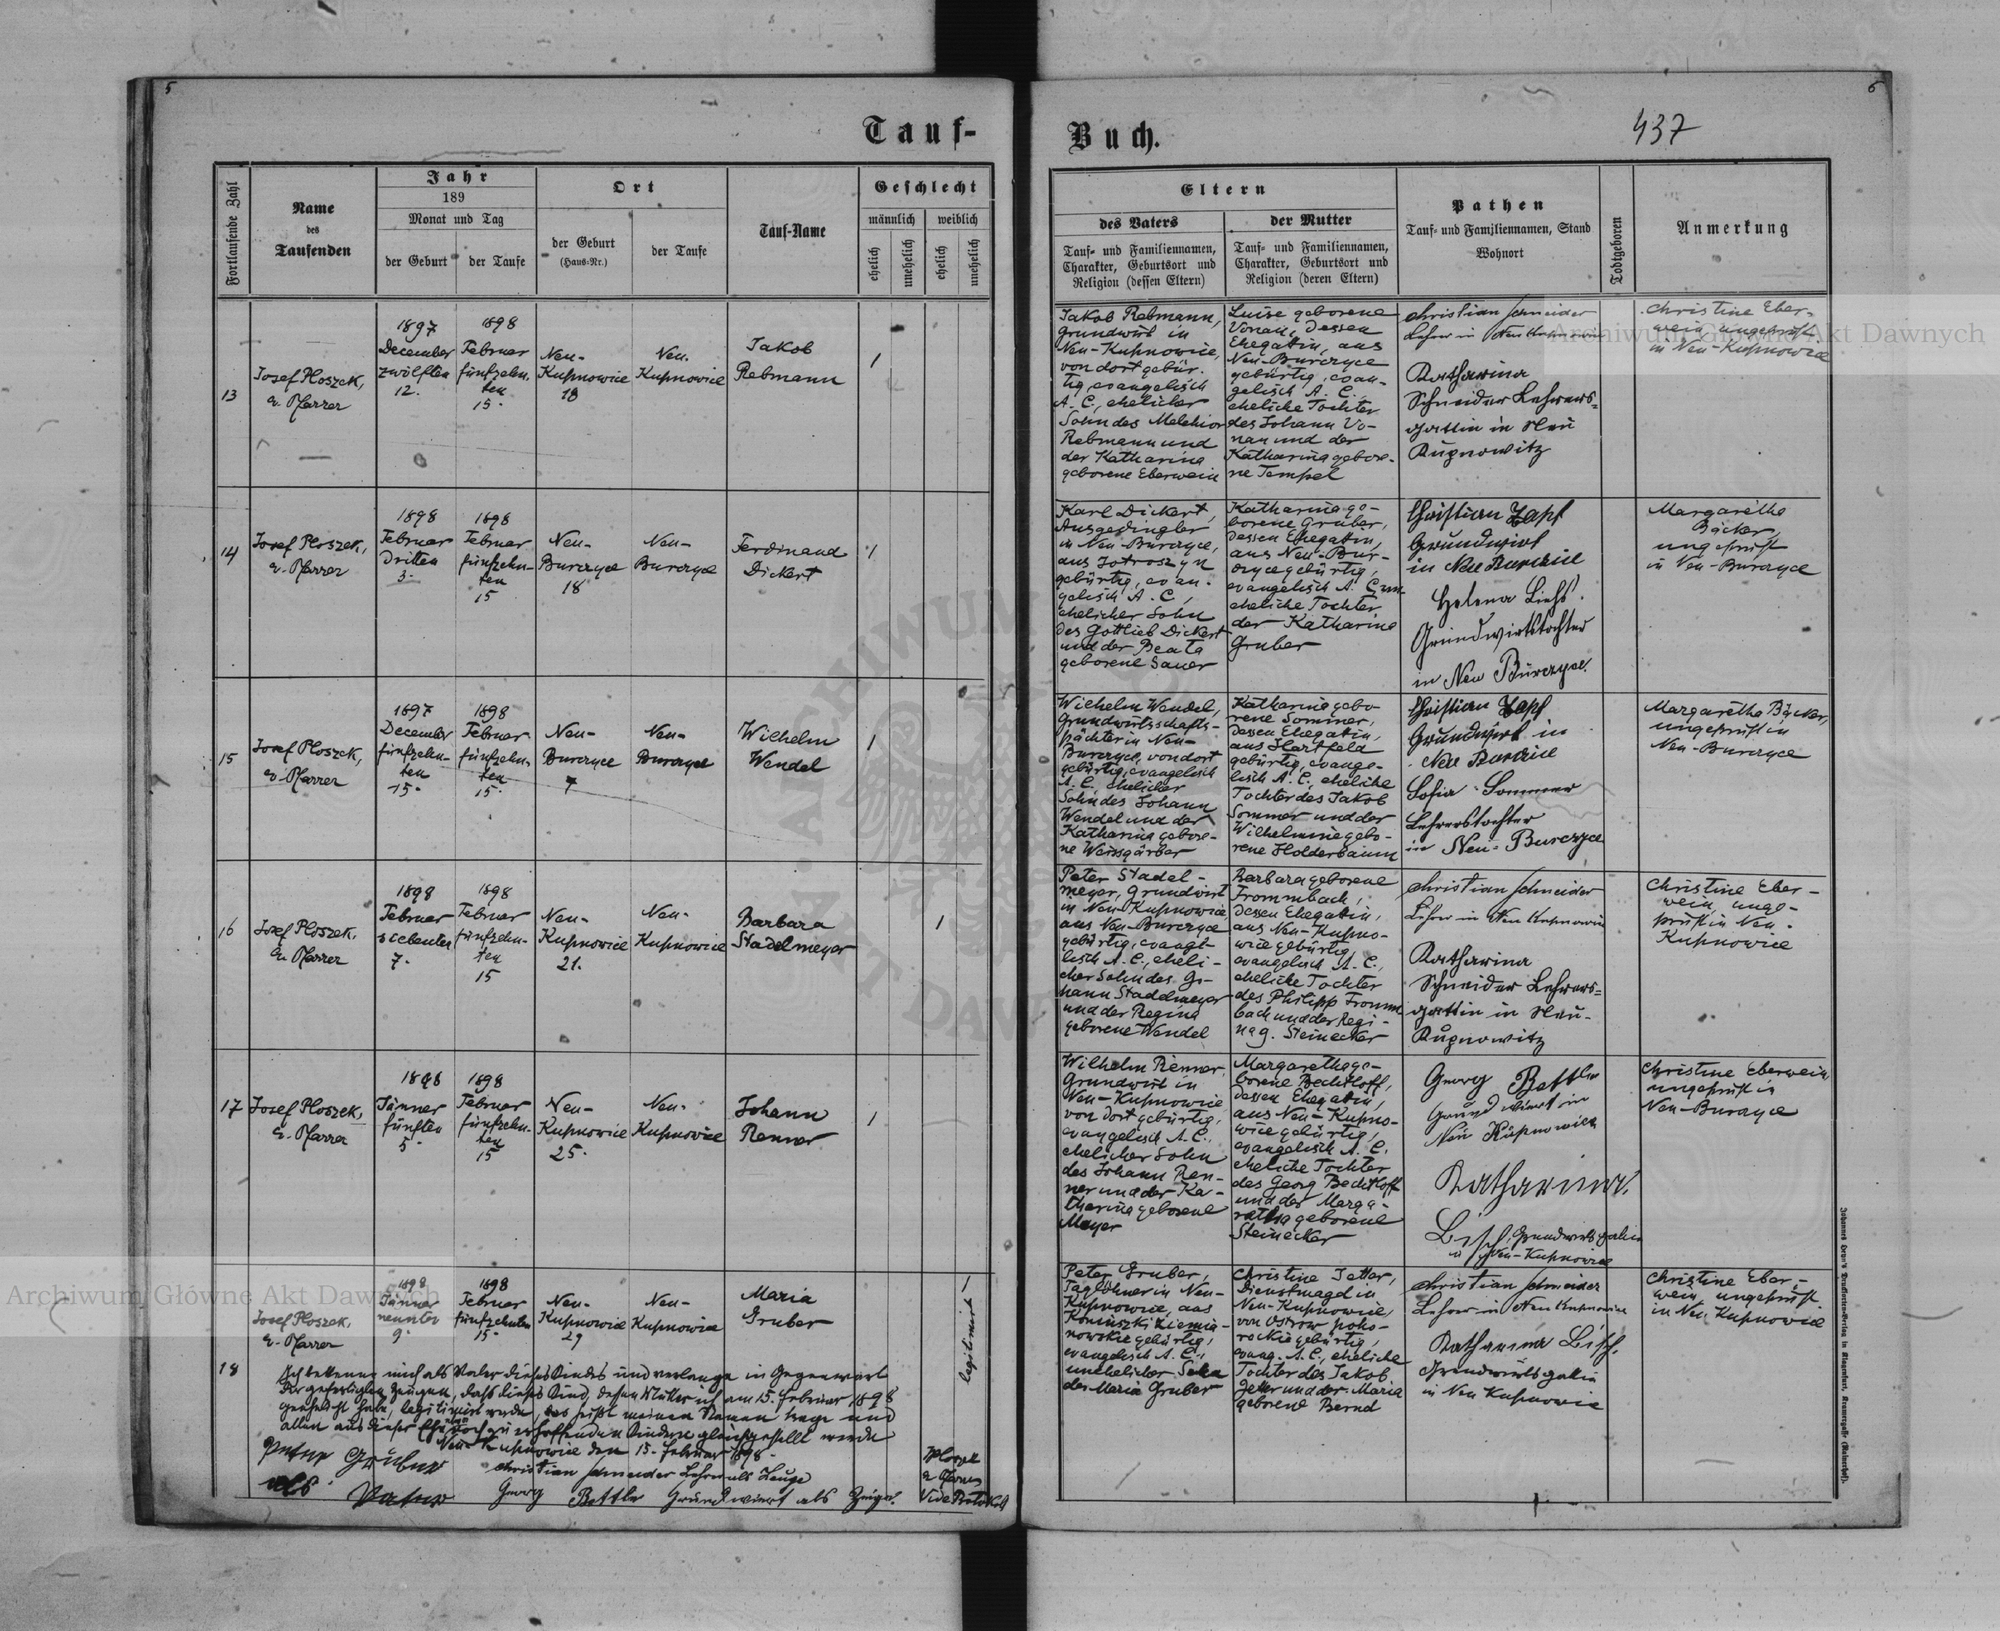 5
Tauf-
Fortlaufende Zahl
Name
des
Taufenden
Jahr
189
Monat und Tag
der Geburt
der Taufe
Ort
der Geburt
(Haus-Nr.)
der Taufe
Tauf-Name
Geschlecht
männlich
weiblich
ehelich
unehelich
ehelich
unehelich
13
Josef Ploszek,
ev. Pfarrer
1897
December
zwölften
12.
1898
Februar
fünfzehn-
ten
15.
Neu-
Kupnowice
18
Neu-
Kupnowice
Jakob
Rebmann
1
14
Josef Ploszek,
ev. Pfarrer
1898
Februar
Dritten
3.
1898
Februar
fünfzehn-
ten
15
Neu-
Burczyce
18
Neu-
Burczyce
Ferdinand
Dickert
1
15
Josef Ploszek,
ev. Pfarrer
1897
December
fünfzehn-
ten
15.
1898
Februar
fünfzehn-
ten
15.
Neu-
Burczyce
7
Neu-
Burczyce
Wilhelm
Wendel
1
16
Josef Ploszek,
ev. Pfarrer
1898
Februar
siebenten
7.
1898
Februar
fünfzehn-
ten
15
Neu-
Kupnowice
21.
Neu-
Kupnowice
Barbara
Stadelmeyer
1
17
Josef Ploszek,
ev. Pfarrer
1898
Jänner
fünften
5.
1898
Februar
fünfzehn-
ten
15
Neu-
Kupnowice
25.
Neu-
Kupnowice
Johann
Renner
1
18
Josef Ploszek,
ev. Pfarrer
1898
Jänner
neunter
9.
1898
Februar
fünfzehnten
15.
Neu-
Kupnowice
29
Neu-
Kupnowice
Maria
Gruber
legitimirt
1
Ich bekenne mich als Vater dieses Kindes und verlange in Gegenwart
der gefertigten Zeugen, dass dieses Kind, dessen Mutter ich am 15. Februar 1898
geehelicht habe, legitimirt werde, das heißt meinen Namen trage und
allen aus dieser Ehe noch zu erhoffenden Kindern gleichgestellt werde
Neu-Kupnowice den 15. Februar 1898.
Peter Gruber
als Vater
Christian Schneider Lehrer als Zeuge
Georg Bettler Grundwiert als Zeuge.
Ploszek
ev. Pfarrer
Vide Protokoll
6
Buch.
437
Eltern
des Vaters
Tauf- und Familiennamen,
Charakter, Geburtsort und
Religion (dessen Eltern)
der Mutter
Tauf- und Familiennamen,
Charakter, Geburtsort und
Religion (deren Eltern)
Pathen
Tauf- und Familiennamen, Stand
Wohnort
Todtgeboren
Anmerkung
Jakob Rebmann,
Grundwirt in
Neu-Kupnowice,
von dort gebür-
tig, evangelisch
A. C., ehelicher
Sohn des Melchior
Rebmann und
der Katharina
geborene Eberwein
Luise geborene
Vonau, dessen
Ehegattin, aus
Neu-Burczyce
gebürtig, evan-
gelisch A. C.
eheliche Tochter
des Johann Vo-
nau und der
Katharina gebore-
ne Tempel
Christian Schneider
Lehrer in Neu Kupnowice
Katharina
Schneider Lehrers-
gattin in Neu
Kupnowitz
Christine Eber-
wein ungeprüft
in Neu-Kupnowice
Karl Dickert,
Ausgedingler
in Neu-Burczyce,
aus Josroszyn
gebürtig, evan-
gelisch A. C.,
ehelicher Sohn
des Gottlieb Dickert
und der Beata
geborene Sauer
Katharina ge-
borene Gruber,
dessen Ehegattin,
aus Neu-Bur-
czyce gebürtig,
evangelisch A. C.
eheliche Tochter
der Katharina
Gruber
Christian Zapf
Grundwirt
in Neu Burczice
Helena Liehs.
Grundwirtstochter
in Neu Burczyce.
Margaretha
Bäcker
ungeprüft
in Neu-Burczyce
Wilhelm Wendel,
Grundwirtschafts-
pächter in Neu-
Burczyce, von dort
gebürtig, evangelisch
A. C., ehelicher
Sohn des Johann
Wendel und der
Katharina gebore-
ne Weissgärber
Katharina gebo-
rene Sommer,
dessen Ehegattin,
aus Hartfeld
gebürtig, evange-
lisch A. C., eheliche
Tochter des Jakob
Sommer und der
Wilhelmine gebo-
rene Holderbaum
Christian Zapf
Grundwirt in
Neu Burczice
Sofia Sommer
Lehrerstochter
in Neu-Burczyce
Margaretha Bäcker,
ungeprüft in
Neu-Burczyce
Peter Stadel-
meyer, Grundwirt
in Neu-Kupnowice
aus Neu-Burczyce
gebürtig, evange-
lisch A. C., eheli-
cher Sohn des Jo-
hann Stadelmeyer
und der Regina
geborene Wendel
Barbara geborene
Frommbach,
dessen Ehegattin,
aus Neu-Kupno-
wice gebürtig,
evangelisch A. C.,
eheliche Tochter
des Philipp Fromm-
bach und der Regi-
na g. Steinecker
Christian Schneider
Lehrer in Neu Kupnowice
Katharina
Schneider Lehrers-
gattin in Neu-
Kupnowitz
Christine Eber-
wein, unge-
prüft in Neu-
Kupnowice
Wilhelm Renner,
Grundwirt in
Neu-Kupnowice,
von dort gebürtig,
evangelisch A. C.,
ehelicher Sohn
des Johann Ren-
ner und der Ka-
tharina geborene
Mayer
Margaretha ge-
borene Bechtloff,
dessen Ehegattin,
aus Neu-Kupno-
wice gebürtig,
evangelisch A. C.
eheliche Tochter
des Georg Bechtloff
und der Marga-
retha geborene
Steinecker
Georg Bettler
Grundwiert in
Neu Kupnowice
Katharina
Bisch, Grundwirtsgattin
in Neu-Kupnowice
Christine Eberwein
ungeprüft in
Neu-Burczyce
Peter Gruber,
Taglöhner in Neu-
Kupnowice, aus
Koniuszki Siemia-
nowskie gebürtig,
evangelisch A. C.,
unehelicher Sohn
der Maria Gruber
Christine Jetter,
Dienstmagd in
Neu-Kupnowice,
von Ostrow poho-
rockie gebürtig,
evang. A. C., eheliche
Tochter des Jakob
Jetter und der Maria
geborene Bernd
Christian Schneider
Lehrer in Neu Kupnowice
Katharina Bisch,
Grundwirtsgattin
in Neu Kupnowice
Christine Eber-
wein, ungeprüft
in Neu Kupnowice
Archiwum Główne Akt Dawnych
Archiwum Główne Akt Dawnych